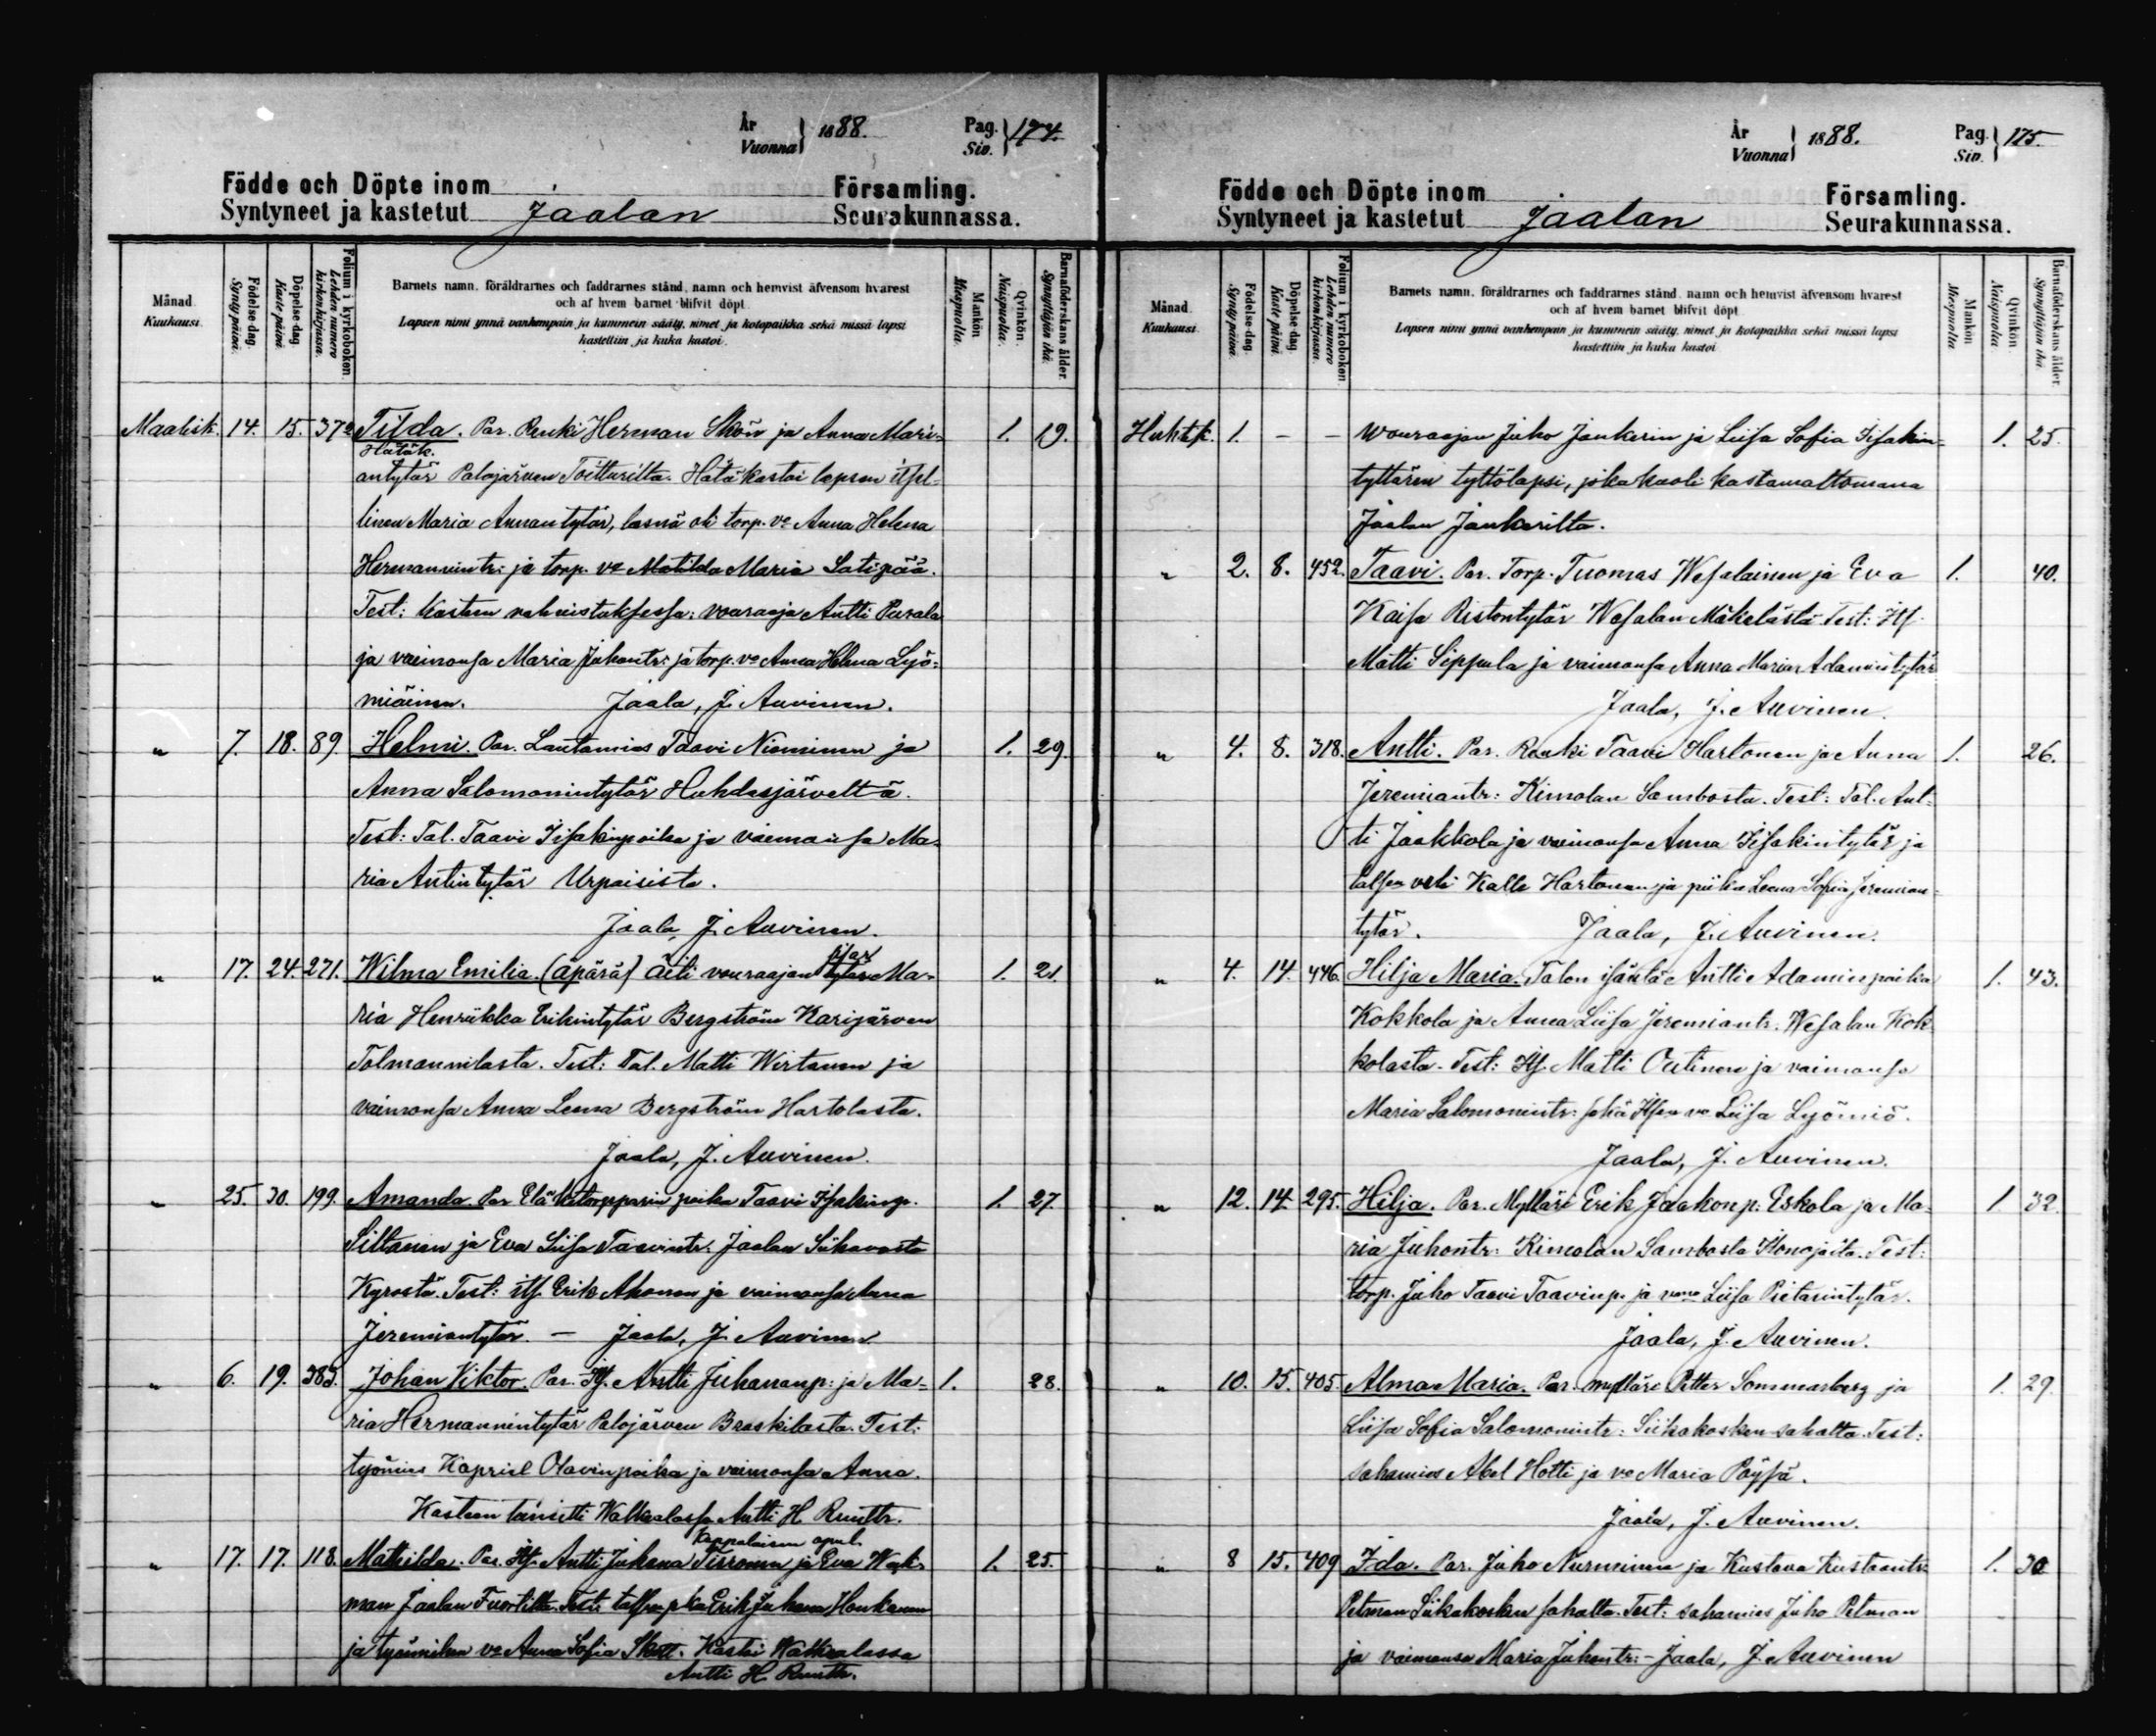 År
Vuonna } 1888. Pag. Siv. } 174.
Födde och Döpte inom Församling.
Syntyneet ja kastetut Jaalan Seurakunnassa.
Månad. Kuukausi.
Födelse-dag. Synty päivä.
Döpelse-dag. Kaste-päivä.
Folium i kyrkoboken. Lehden numero kirkonkirjassa.
Barnets namn, föräldrarnes och faddrarnes stånd, namn och hemvist äfvensom hvarest
och af hvem barnet blifvit döpt.
Lapsen nimi ynnä vanhempain ja kummein sääty, nimet ja kotopaikka sekä missä lapsi
kastettiin ja kuka kastoi.
Mankön. Miespuolia.
Qvinkön. Naispuolia.
Barnaföderskans ålder. Synnyttäjän ikä.
Maalisk. 14. 15. 372 Tilda. Par. Renki Herman Skön ja Anna Mari- 1. 19.
Hätäk.
antytär Palojärven Toitturilta. Hätäkastoi lapsen itsel-
linen Maria Annantytär, läsnä oli torp. vo Anna Helena
Hermannintr: ja torp. vo Matilda Maria Latipää.
Test: kasteen vahvistuksessa: vouraaja Antti Purala
ja vaimonsa Maria Juhontr: ja torp. vo Anna Helena Lyö-
miäinen. Jaala, J. Auvinen.
" 7. 18. 89. Helmi. Par. Lautamies Taavi Nieminen ja 1. 29.
Anna Salomonintytär Huhdasjärveltä.
Test: Tal. Taavi Iisakinpoika ja vaimonsa Ma-
ria Antintytär Urpaisista.
Jaala, J. Auvinen.
" 17. 24. 271. Wilma Emilia. (äpärä) äiti vouraajan tytär Ma- 1. 21.
ria Henriikka Erikintytär Bergström Karijärven
Tolmannilasta. Test: Tal. Matti Wirtanen ja
vaimonsa Anna Leena Bergström Hartolasta.
Jaala, J. Auvinen.
" 25. 30. 199. Amanda. Par. Eläketorpparin poika Taavi Iisakinp. 1. 27.
Siltanen ja Eva Liisa Taavintr: Jaalan Siikavasta
Kyrostä. Test: itf. Erik Ahonen ja vaimonsa Anna
Jeremiantytär. – Jaala, J. Auvinen.
" 6. 19. 383. Johan Viktor. Par. Itf. Antti Juhananp: ja Ma- 1. 28.
ria Hermannintytär Palojärven Braskilasta. Test:
työmies Kapriel Olavinpoika ja vaimonsa Anna.
Kasteen toimitti Walkealassa Antti H. Ruuth.
Kappalaisen apul.
" 17. 17. 118. Mathilda. Par. Itf. Antti Juhana Tirronen ja Eva Wyk- 1. 25.
man Jaalan Fuortilta. Test: talfen pka Erik Juhana Honkanen
ja työmiehen vo Anna Sofia Skott. Kastoi Walkealassa
Antti H. Ruuth.
År
Vuonna } 1888. Pag. Siv. } 175.
Födde och Döpte inom Församling.
Syntyneet ja kastetut Jaalan Seurakunnassa.
Månad. Kuukausi.
Födelse-dag. Synty päivä.
Döpelse-dag. Kaste päivä.
Folium i kyrkoboken. Lehden numero kirkonkirjassa.
Barnets namn, föräldrarnes och faddrarnes stånd, namn och hemvist äfvensom hvarest
och af hvem barnet blifvit döpt.
Lapsen nimi ynnä vanhempain ja kummein sääty, nimet ja kotopaikka sekä missä lapsi
kastettiin ja kuka kastoi
Mankön. Miespuolia
Qvinkön. Naispuolia
Barnaföderskans ålder. Synnyttäjän ikä.
Huhtik. 1. – – Wouraajan Juho Jankerin ja Liisa Sofia Iisakin- 1. 25.
tyttären tyttölapsi, joka kuoli kastamattomana
Jaalan Jankerilta.
" 2. 8. 452. Taavi. Par. Torp. Tuomas Wesalainen ja Eva 1. 40.
Kaisa Ristontytär Wesalan Mäkelästä. Test: Itf.
Matti Sippula ja vaimonsa Anna Maria Adamintytär
Jaala, J. Auvinen.
" 4. 8. 318. Antti. Par. Renki Taavi Hartonen ja Anna 1. 26.
Jeremiantr: Kimolan Sambosta. Test: Tal. Ant-
ti Jaakkola ja vaimonsa Anna Iisakintytär ja
talfen veli Kalle Hartonen ja piika Leena Sofia Jeremian-
tytär. Jaala, J. Auvinen.
" 4. 14. 446. Hilja Maria. Talon isäntä Antti Adaminpoika 1. 43.
Kokkola ja Anna Liisa Jeremiantr: Wesalan Kok-
kolasta. Test: Itf. Matti Outinen ja vaimonsa
Maria Salomonintr: sekä Itfen vo Liisa Lyömiö.
Jaala, J. Auvinen.
" 12. 14. 295. Hilja. Par. Mylläri Erik Jaakonp: Eskola ja Ma- 1. 32.
ria Juhontr: Kimolan Sambosta Honojalta. Test:
torp. Juho Taavi Taavinp. ja vmo Liisa Pietarintytär.
Jaala, J. Auvinen.
" 10. 15. 405. Alma Maria. Par. mylläri Petter Sommarberg ja 1. 29.
Liisa Sofia Salomonintr: Siikakosken sahalta. Test:
sahamies Abel Hotti ja vo Maria Pöysä.
Jaala, J. Auvinen.
" 8 15. 409 Ida. Par. Juho Nurminen ja Kustava Kustaantr: 1. 30
Petman Siikakosken sahalta. Test: sahamies Juho Petman
ja vaimonsa Maria Juhontr: – Jaala, J. Auvinen